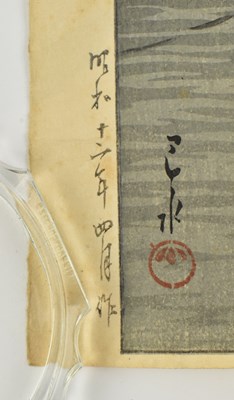 昭和十二年四月作
巴水